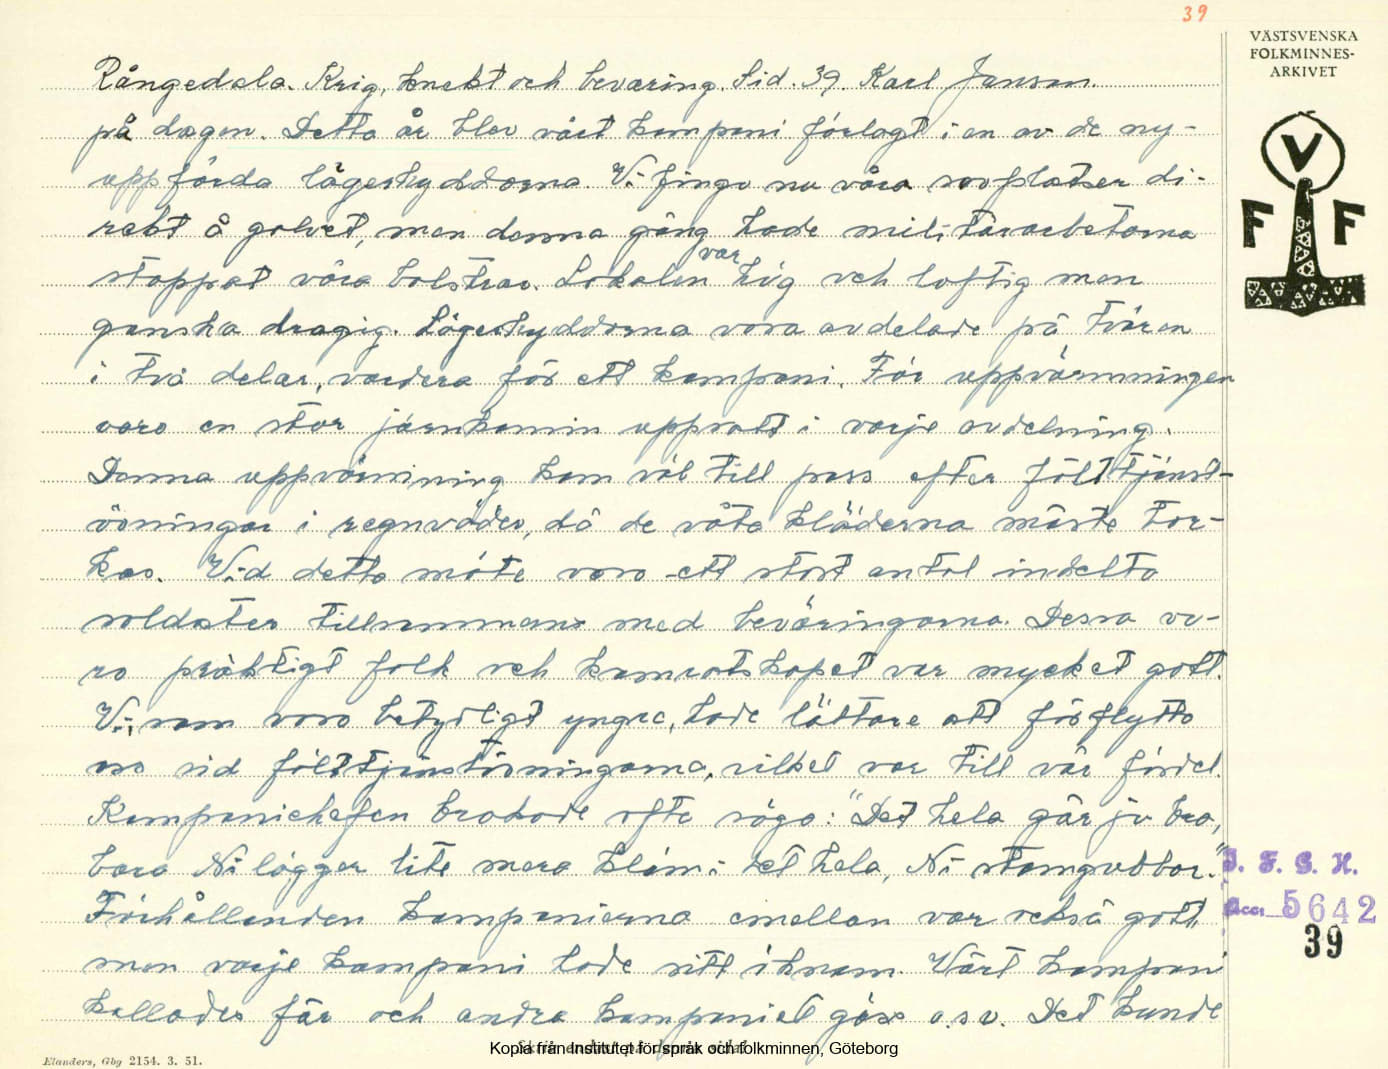 39
VÄSTSVENSKA
FOLKMINNES-
ARKIVET
V
F F
Rångedala. Krig, knekt och bevaring. Sid. 39. Karl Janson.
på dagen. Detta år blev vårt kompani förlagt i en av de ny-
uppförda lägerhyddorna. Vi fingo nu våra sovplatser di-
rekt å golvet, men denna gång hade militärarbetarna
stoppat våra bolstrar. Lokalen var hög och luftig men
ganska dragig. Lägerhyddorna voro avdelade på tvären
i två delar, vardera för ett kompani. För uppvärmningen
voro en stor järnkamin uppsatt i varje avdelning.
Denna uppvärmning kom väl till pass efter fälttjänst-
övningar i regnväder, då de våta kläderna måste tor-
kas. Vid detta möte voro ett stort antal indelta
soldater tillsammans med beväringarna. Dessa vo-
ro präktigt folk och kamratskapet var mycket gott.
Vi, som voro betydligt yngre, hade lättare att förflytta
oss vid fälttjänstövningarna, vilket var till vår fördel.
Kompanichefen brukade ofta säga: "Det hela går ju bra,
bara Ni lägger lite mera kläm i det hela, Ni stamgubbar."
Förhållanden kompanierna emellan var också gott,
men varje kompani hade sitt öknamn. Vårt kompani
kallades får och andra kompaniet gäss o.s.v. Det kunde
J. F. G. H.
Acc. 5642
39
Elanders, Gbg 2154. 3. 51.
Kopia från Institutet för språk och folkminnen, Göteborg